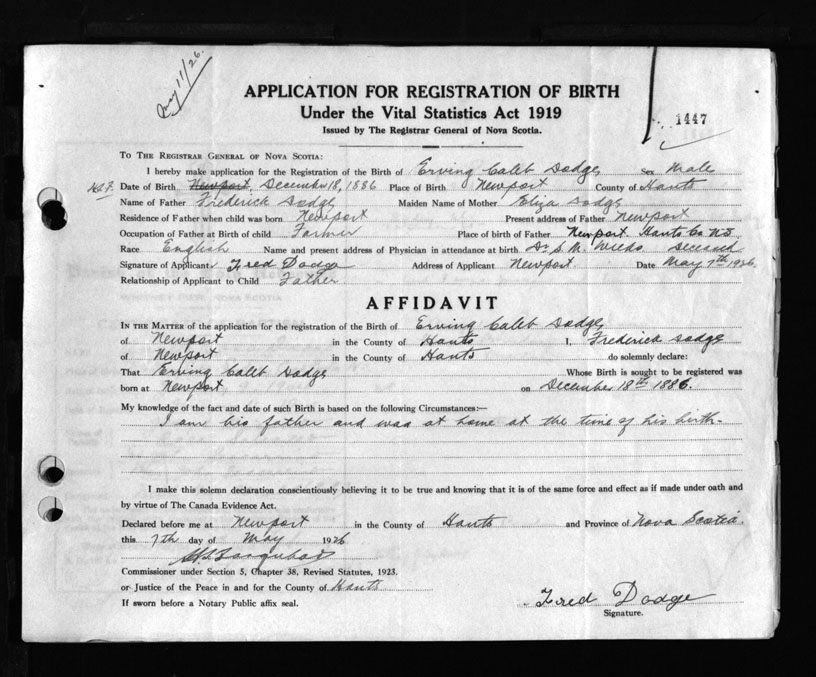 May 11/26.
APPLICATION FOR REGISTRATION OF BIRTH
Under the Vital Statistics Act 1919
Issued by The Registrar General of Nova Scotia.
1447
To The Registrar General of Nova Scotia:
I hereby make application for the Registration of the Birth of Erving Caleb Dodge Sex Male
Date of Birth Newport, December 18, 1886 Place of Birth Newport County of Hants
Name of Father Frederick Dodge Maiden Name of Mother Eliza Dodge
Residence of Father when child was born Newport Present address of Father Newport
Occupation of Father at Birth of child Farmer Place of birth of Father Newport Hants Co NS
Race English Name and present address of Physician in attendance at birth Dr S. W. Deceased
Signature of Applicant Fred Dodge Address of Applicant Newport. Date May 7th 1926
Relationship of Applicant to Child Father
AFFIDAVIT
In the Matter of the application for the registration of the Birth of Erving Caleb Dodge
of Newport in the County of Hants I, Frederick Dodge
of Newport in the County of Hants do solemnly declare:
That Erving Caleb Dodge Whose Birth is sought to be registered was
born at Newport on December 18th 1886.
My knowledge of the fact and date of such Birth is based on the following Circumstances:—
I am his father and was at home at the time of his birth.
I make this solemn declaration conscientiously believing it to be true and knowing that it is of the same force and effect as if made under oath and
by virtue of The Canada Evidence Act.
Declared before me at Newport in the County of Hants and Province of Nova Scotia.
this 7th day of May 1926
Commissioner under Section 5, Chapter 38, Revised Statutes, 1923.
or Justice of the Peace in and for the County of Hants
If sworn before a Notary Public affix seal.
Fred Dodge
Signature.